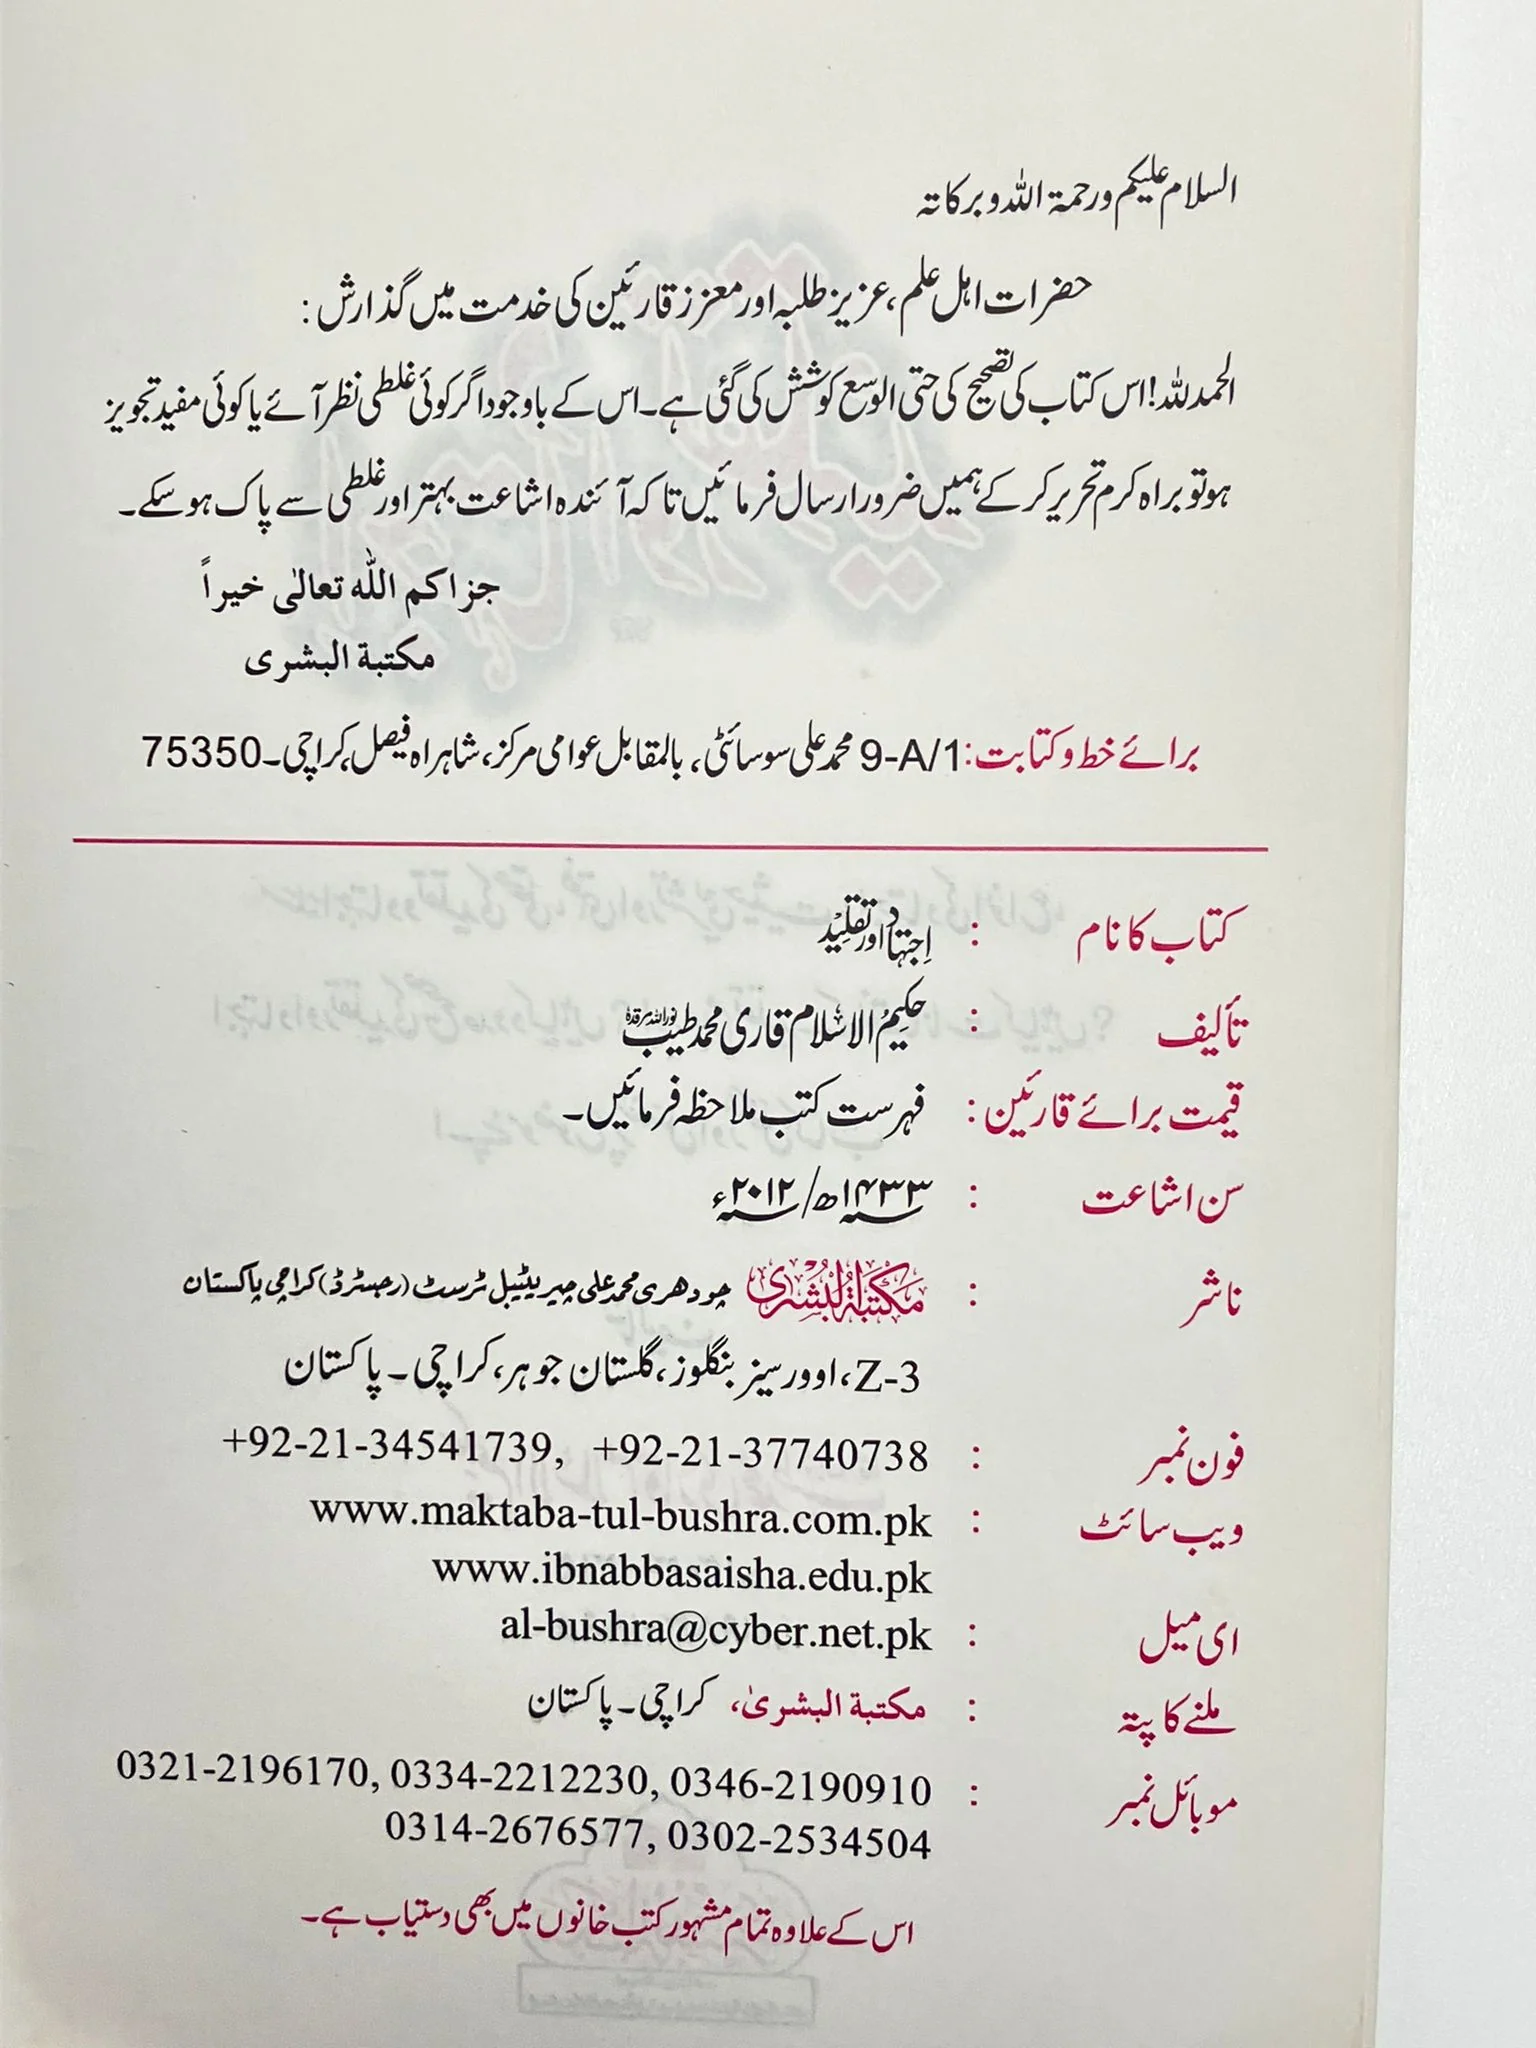 السلام علیکم ورحمۃ اللہ وبرکاتہ
حضرات اہل علم، عزیز طلبہ اور معزز قارئین کی خدمت میں گذارش:
الحمد للہ! اس کتاب کی تصحیح کی حتی الوسع کوشش کی گئی ہے۔ اس کے باوجود اگر کوئی غلطی نظر آئے یا کوئی مفید تجویز
ہو تو براہ کرم تحریر کر کے ہمیں ضرور ارسال فرمائیں تاکہ آئندہ اشاعت بہتر اور غلطی سے پاک ہو سکے۔
جزاكم الله تعالى خيراً
مكتبة البشرى
برائے خط و کتابت: 9-A/1 محمد علی سوسائٹی، بالمقابل عوامی مرکز، شاہراہ فیصل، کراچی۔ 75350
کتاب کا نام : اِجتہاد اور تقلِید
تألیف : حکیمُ الاسْلام قاری محمد طیب نور اللہ مرقدہ
قیمت برائے قارئین : فہرست کتب ملاحظہ فرمائیں۔
سن اشاعت : ۱۴۳۳ھ/ ۲۰۱۲ء
ناشر : مَكْتَبَةُ الْبُشْرٰى چودھری محمد علی چیریٹیبل ٹرسٹ (رجسٹرڈ) کراچی پاکستان
Z-3، اوورسیز بنگلوز، گلستان جوہر، کراچی۔ پاکستان
فون نمبر : +92-21-34541739, +92-21-37740738
ویب سائٹ : www.maktaba-tul-bushra.com.pk
www.ibnabbasaisha.edu.pk
ای میل : al-bushra@cyber.net.pk
ملنے کا پتہ : مكتبة البشرىٰ، کراچی۔ پاکستان
موبائل نمبر : 0321-2196170, 0334-2212230, 0346-2190910
0314-2676577, 0302-2534504
اس کے علاوہ تمام مشہور کتب خانوں میں بھی دستیاب ہے۔